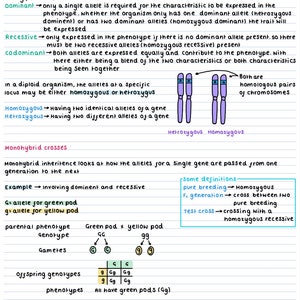 Dominant → only a single allele is required for the characteristics to be expressed in the
phenotype, whether the organism only has one dominant allele (heterozygous
dominant) or has two dominant alleles (homozygous dominant) the trait will
be expressed
Recessive → only expressed in the phenotype if there is no dominant allele present so there
must be two recessive alleles (homozygous recessive) present
Codominant → Both alleles are expressed equally and contribute to the phenotype with
there either being a blend of the two characteristics or both characteristics
being seen together
Both are
homologous pairs
of chromosomes
In a diploid organism, the alleles at a specific
locus may be either homozygous or heterozygous
Homozygous → Having two identical alleles of a gene
Heterozygous → Having two different alleles of a gene
Heterozygous Homozygous
Monohybrid crosses
Monohybrid inheritance looks at how the alleles for a single gene are passed from one
generation to the next
Example → involving dominant and recessive
G = allele for green pod
g = allele for yellow pod
Some definitions
pure breeding → homozygous
F₁ generation → cross between two
pure breeding
test cross → crossing with a
homozygous recessive
parental phenotype Green pod x yellow pod
Genotype GG gg
Gametes G G g g
G G
Offspring genotypes g Gg Gg
g Gg Gg
phenotypes All have green pods (Gg)